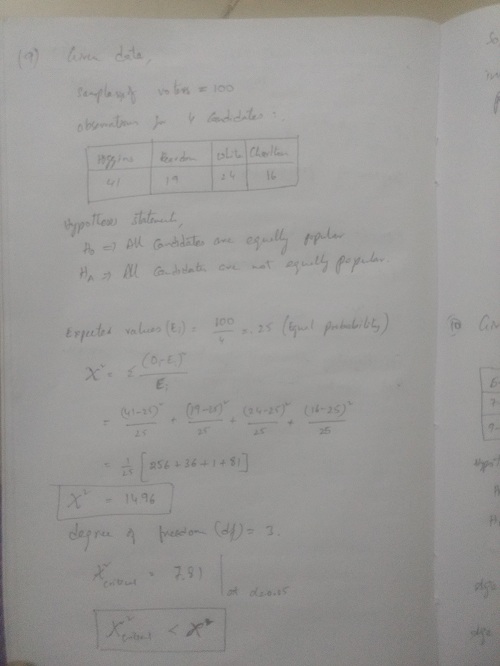 (9) Given data,
Sample of voters = 100
observations for 4 Candidates :
Higgins Reardon White Charlton
41 19 24 16
Hypotheses Statement,
H₀ => All Candidates are equally popular
H_A => All Candidates are not equally popular.
Expected values (Ei) = 100/4 = 25 (Equal probability)
X² = Σ (Oi-Ei)²/Ei
= (41-25)²/25 + (19-25)²/25 + (24-25)²/25 + (16-25)²/25
= 1/25 [256+36+1+81]
X² = 14.96
degree of freedom (df) = 3.
X²critical = 7.81 | at α=0.05
X²critical < X²
(10) Give
Hypoth
H
HA